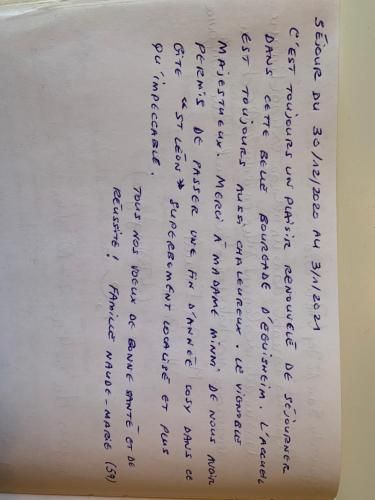 SÉJOUR DU 30/12/2020 AU 3/1/2021
C'EST TOUJOURS UN PLAISIR RENOUVELÉ DE SÉJOURNER
DANS CETTE BELLE BOURGADE D'EGUISHEIM. L'ACCUEIL
EST TOUJOURS AUSSI CHALEUREUX. LE VIGNOBLE
MAJESTUEUX. MERCI À MADAME MINMI DE NOUS AVOIR
PERMIS DE PASSER UNE FIN D'ANNÉE COSY DANS CE
GITE "ST LÉON" SUPERBEMENT LOCALISÉ ET PLUS
QU'IMPECCABLE.
TOUS NOS VOEUX DE BONNE SANTÉ ET DE
RÉUSSITE! FAMILLE NAUDE-MARIE (59)